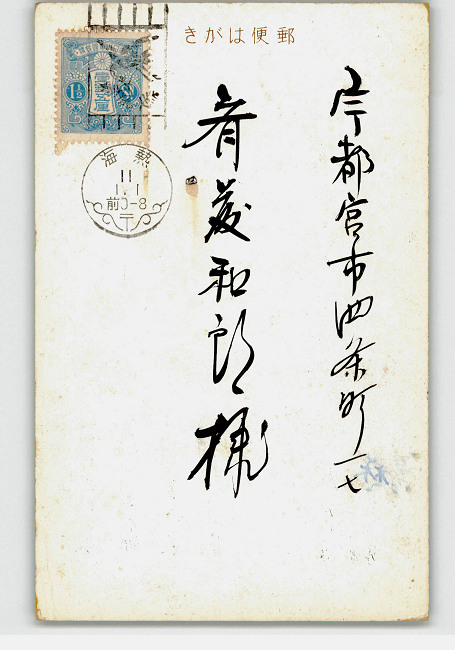 郵便はがき
宇都宮市四条町一七
和郎様
1½
熱海
11
1.1
前0-8
〒